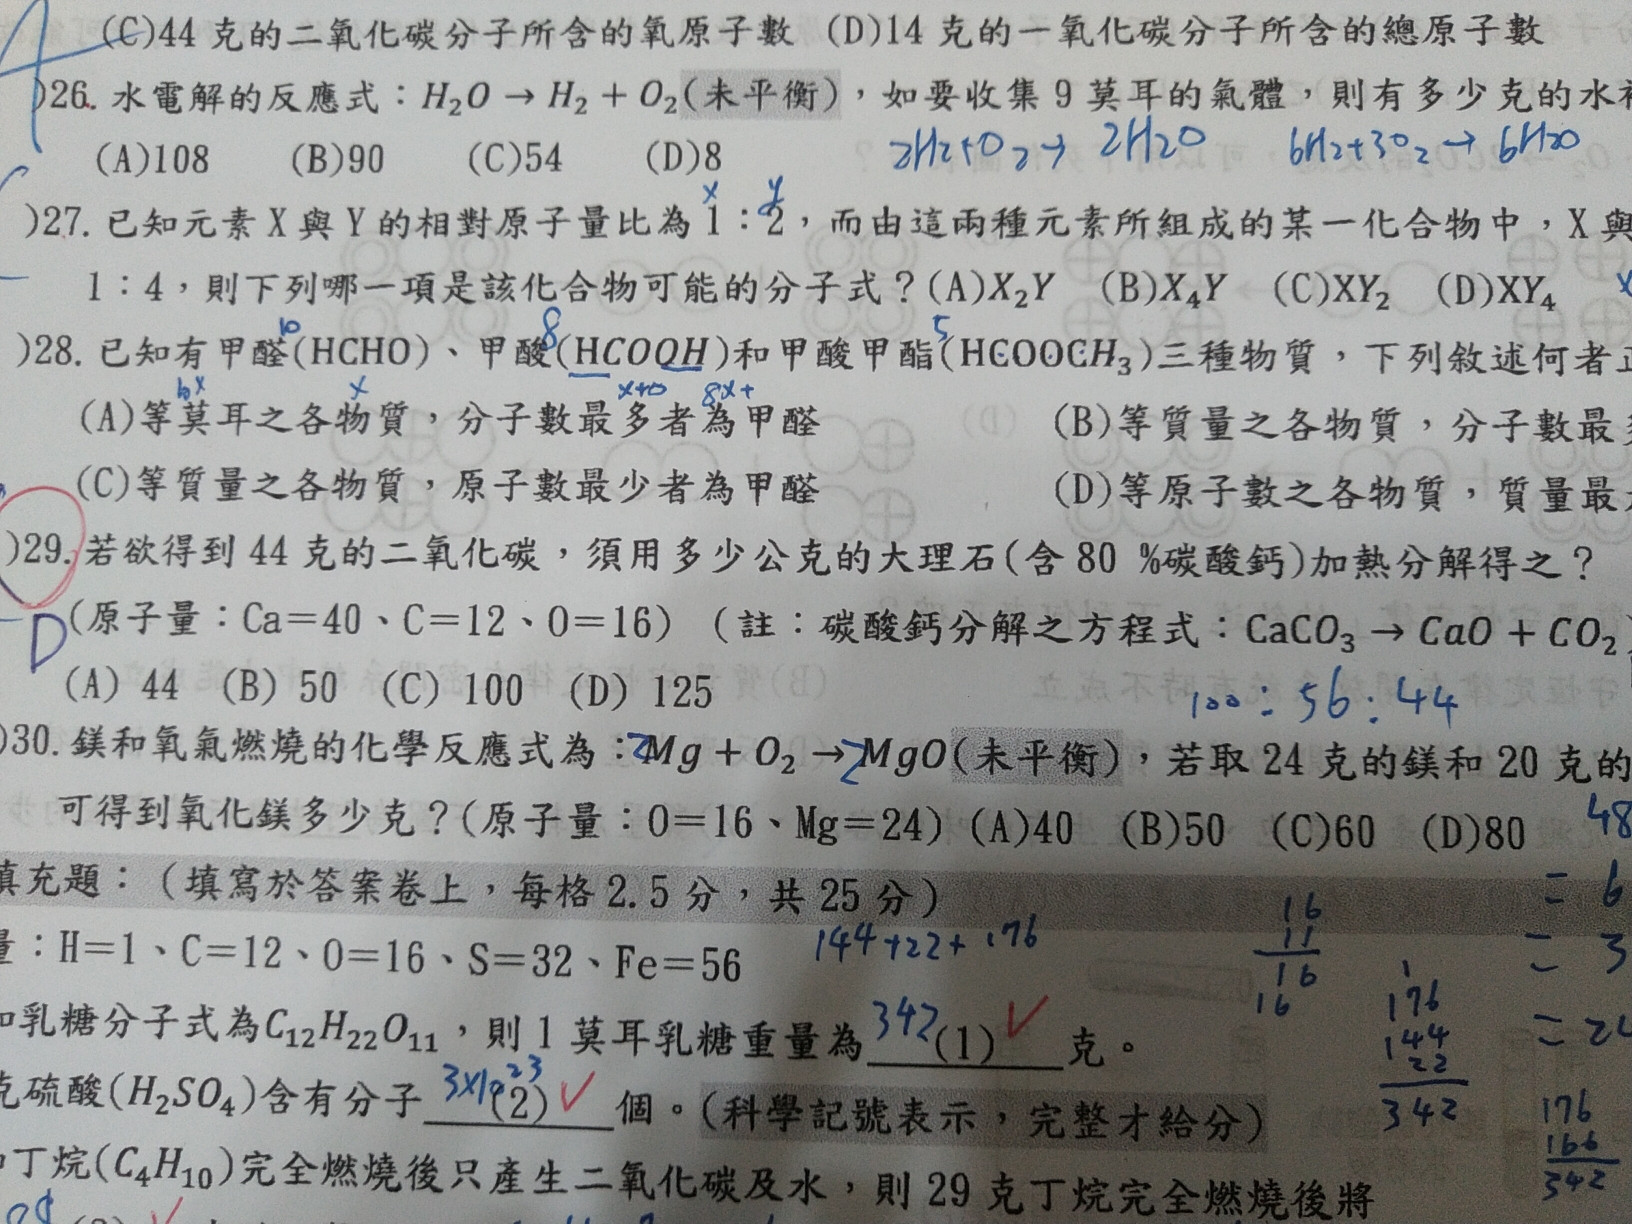 (C)44 克的二氧化碳分子所含的氧原子數 (D)14 克的一氧化碳分子所含的總原子數
)26. 水電解的反應式：H₂O → H₂ + O₂(未平衡)，如要收集 9 莫耳的氣體，則有多少克的水
(A)108 (B)90 (C)54 (D)8
2H₂+O₂→ 2H₂O 6H₂+3O₂→ 6H₂O
x y
)27. 已知元素 X 與 Y 的相對原子量比為 1：2，而由這兩種元素所組成的某一化合物中，X 與
1：4，則下列哪一項是該化合物可能的分子式？(A)X₂Y (B)X₄Y (C)XY₂ (D)XY₄
10 8 5
)28. 已知有甲醛(HCHO)、甲酸(HCOOH)和甲酸甲酯(HCOOCH₃)三種物質，下列敘述何者正
(A)等莫耳之各物質，分子數最多者為甲醛 (B)等質量之各物質，分子數最
(C)等質量之各物質，原子數最少者為甲醛 (D)等原子數之各物質，質量最
)29. 若欲得到 44 克的二氧化碳，須用多少公克的大理石(含 80 %碳酸鈣)加熱分解得之？
D
(原子量：Ca＝40、C＝12、O＝16) (註：碳酸鈣分解之方程式：CaCO₃ → CaO + CO₂)
(A) 44 (B) 50 (C) 100 (D) 125
100：56：44
)30. 鎂和氧氣燃燒的化學反應式為：2Mg + O₂ →2MgO(未平衡)，若取 24 克的鎂和 20 克的
可得到氧化鎂多少克？(原子量：O＝16、Mg＝24) (A)40 (B)50 (C)60 (D)80
48
填充題：(填寫於答案卷上，每格 2.5 分，共 25 分)
= 6
量：H＝1、C＝12、O＝16、S＝32、Fe＝56
144+22+176
16
11
16
16
= 3
和乳糖分子式為C₁₂H₂₂O₁₁，則 1 莫耳乳糖重量為 342 (1) 克。
176
144
22
342
克硫酸(H₂SO₄)含有分子 3x10²³ (2) 個。(科學記號表示，完整才給分)
176
166
342
丁烷(C₄H₁₀)完全燃燒後只產生二氧化碳及水，則 29 克丁烷完全燃燒後將